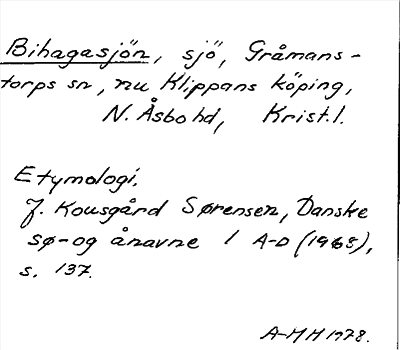 Bihagasjön, sjö, Gråmans-
torps sn, nu Klippans köping,
N. Åsbo hd, Krist.l.
Etymologi.
J. Kousgård Sørensen, Danske
sø- og ånavne 1 A-D (1968),
s. 137.
A-MH 1978.